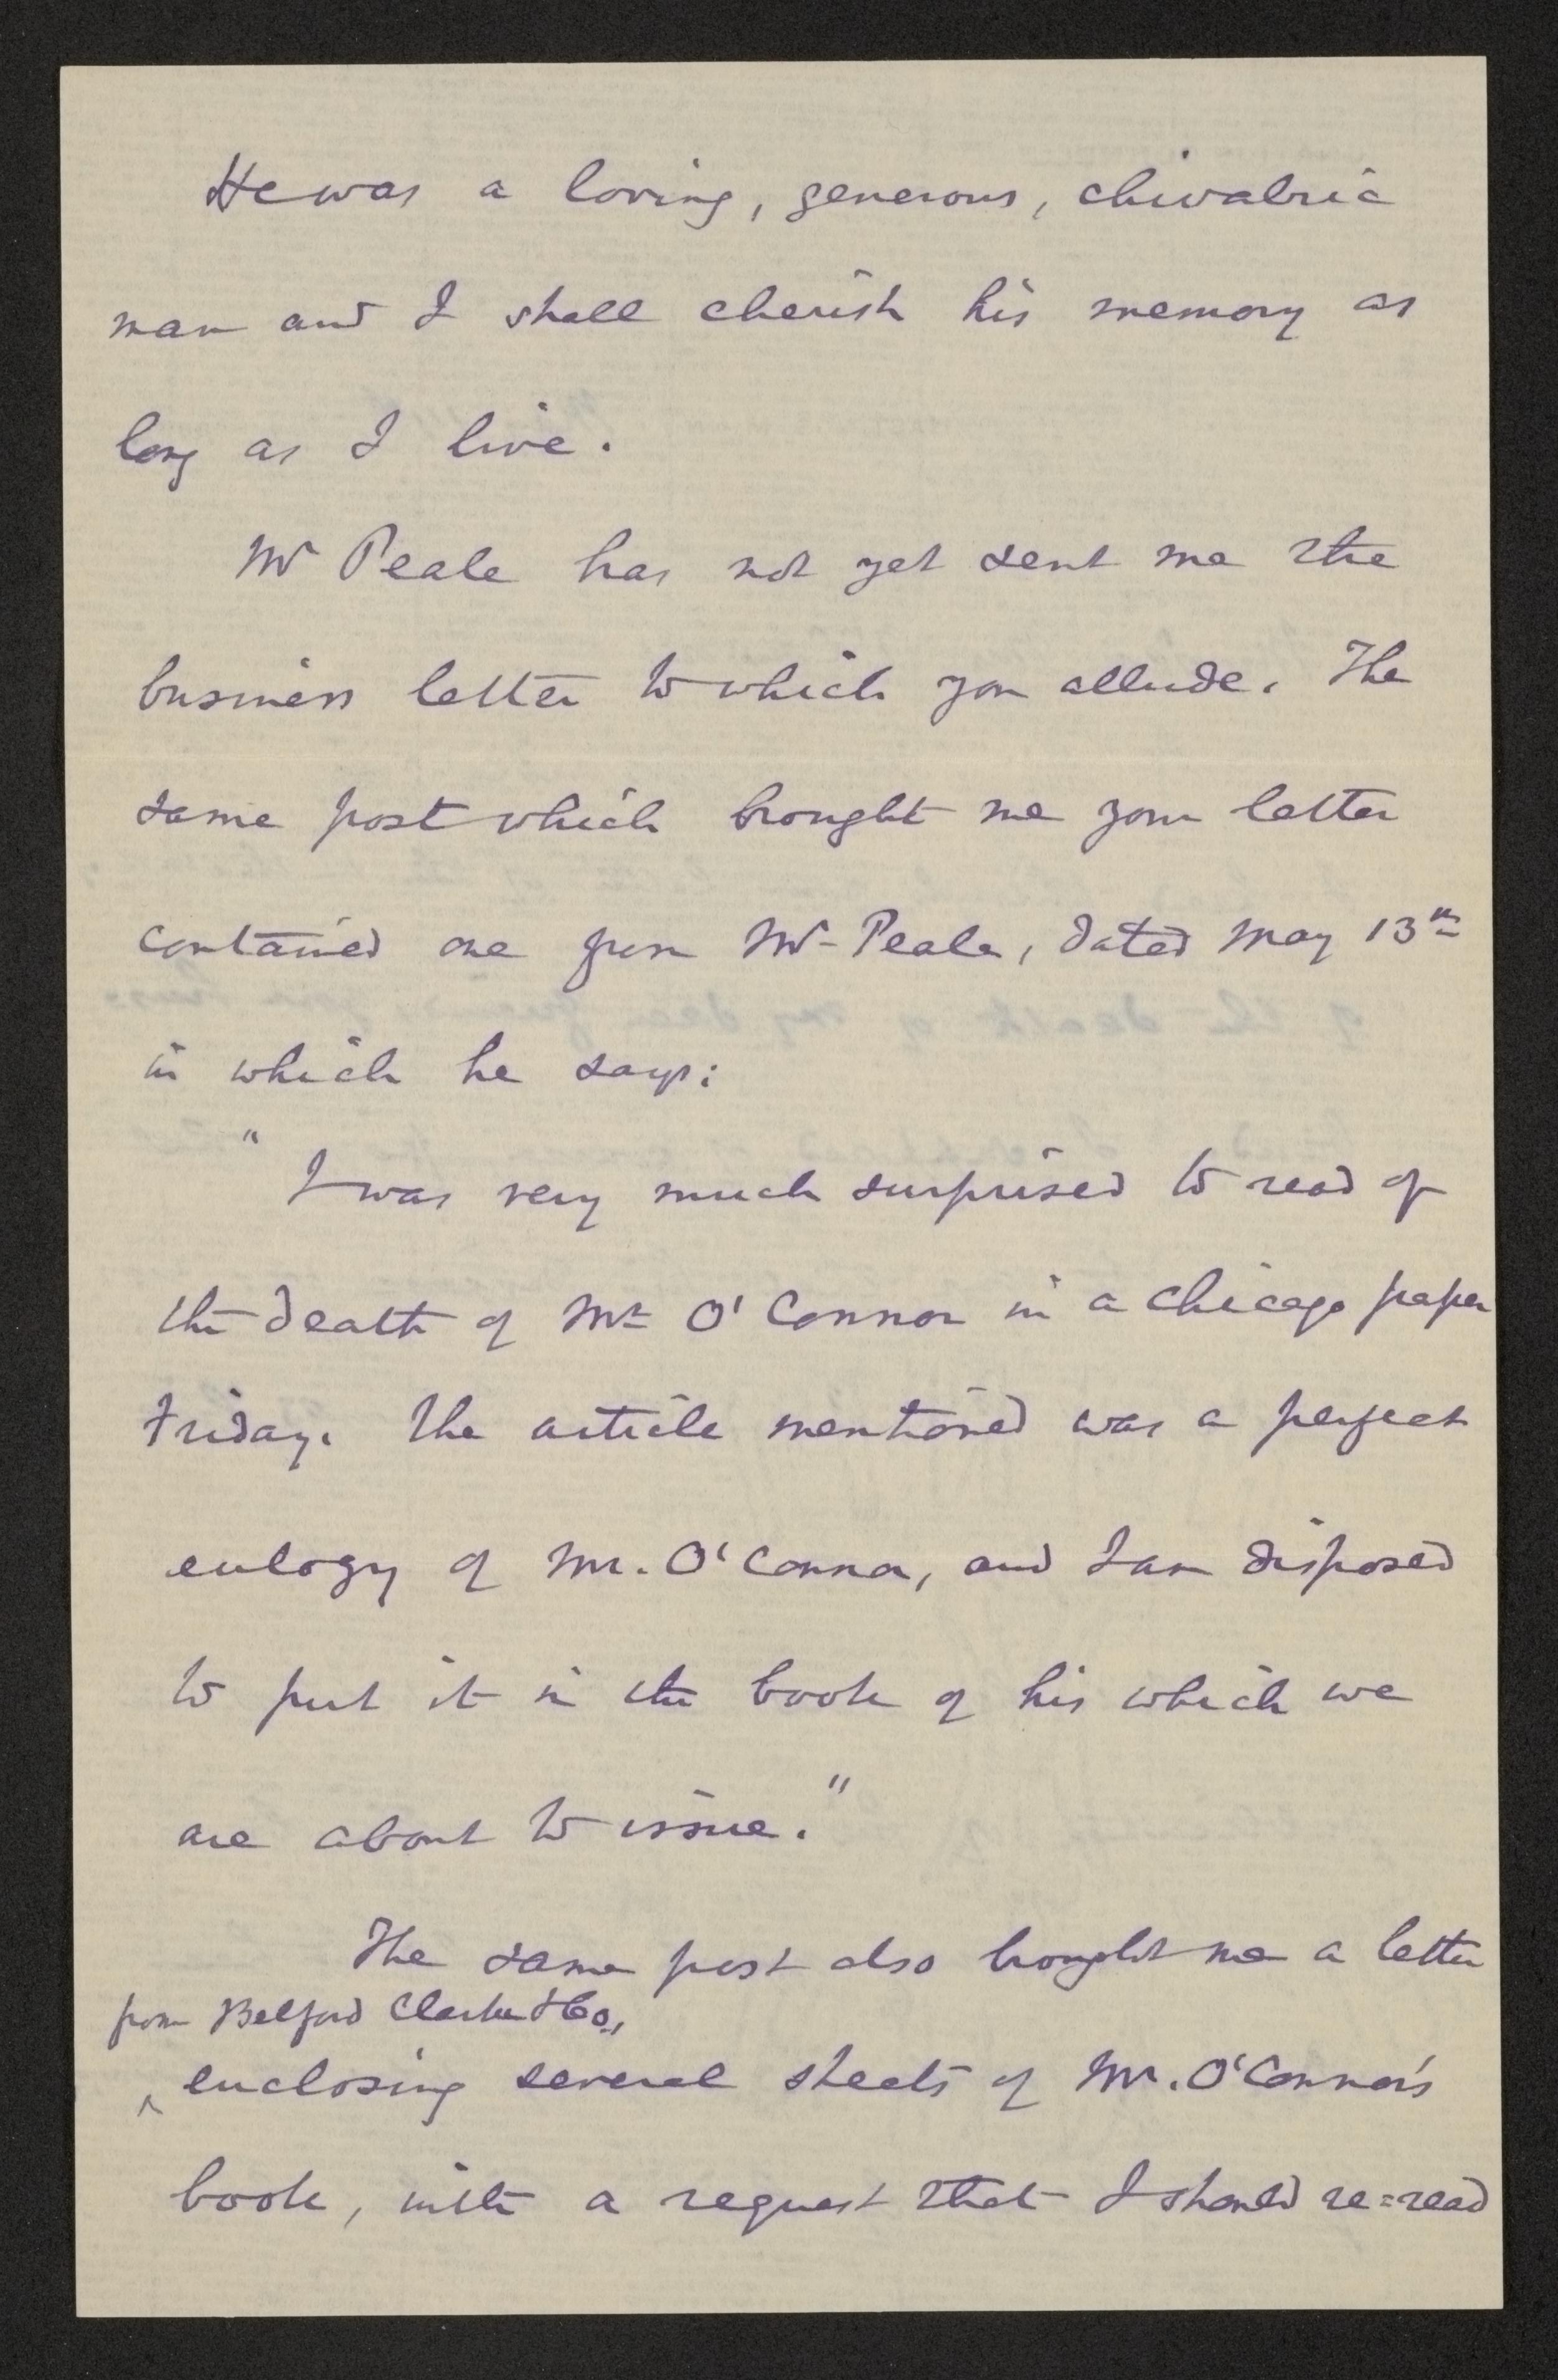 He was a loving, generous, chivalric
man and I shall cherish his memory as
long as I live.
Mr Peale has not yet sent me the
business letter to which you allude. The
same post which brought me your letter
contained one from Mr Peale, dated May 13th
in which he says:
"I was very much surprised to read of
the death of Mr O'Connor in a Chicago paper
Friday. The article mentioned was a perfect
eulogy of Mr. O'Connor, and I am disposed
to put it in the book of his which we
are about to issue."
The same post also brought me a letter
from Belford Clarke & Co.,
^ enclosing several sheets of Mr. O'Connor's
book, with a request that I should re=read